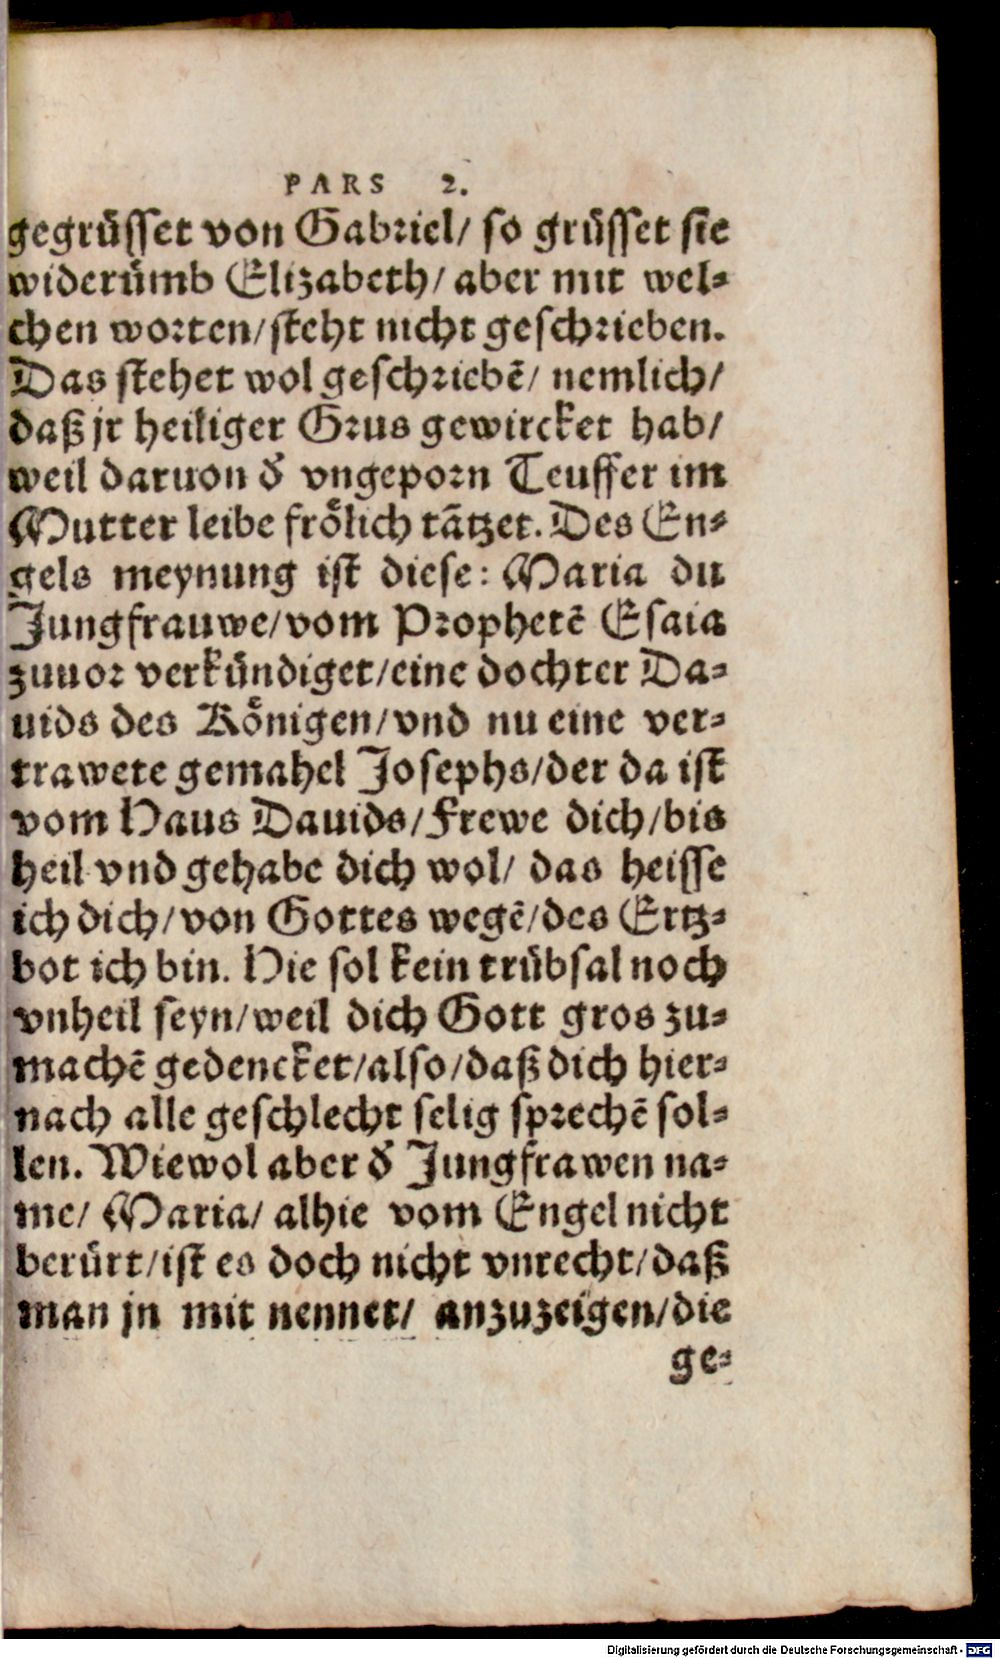 PARS 2.
gegrüsset von Gabriel/ so grüsset sie
widerümb Elizabeth/ aber mit wel-
chen worten/ steht nicht geschrieben.
Das stehet wol geschriebē/ nemlich/
daß jr heiliger Grus gewircket hab/
weil daruon d̄ vngeporn Teuffer im
Mutter leibe frölich tātzet. Des En-
gels meynung ist diese: Maria du
Jungfrauwe/ vom Prophetē Esaia
zuuor verkündiget/ eine dochter Da-
uids des Königen/ vnd nu eine ver-
trawete gemahel Josephs/ der da ist
vom Haus Dauids/ Frewe dich/ bis
heil vnd gehabe dich wol/ das heisse
ich dich/ von Gottes wegē/ des Ertz-
bot ich bin. Hie sol kein trübsal noch
vnheil seyn/ weil dich Gott gros zu-
machē gedencket/ also/ daß dich hier-
nach alle geschlecht selig sprechē sol-
len. Wiewol aber d̄ Jungfrawen na-
me/ Maria/ alhie vom Engel nicht
berürt/ ist es doch nicht vnrecht/ daß
man jn mit nennet/ anzuzeigen/ die
ge-
Digitalisierung gefördert durch die Deutsche Forschungsgemeinschaft - DFG